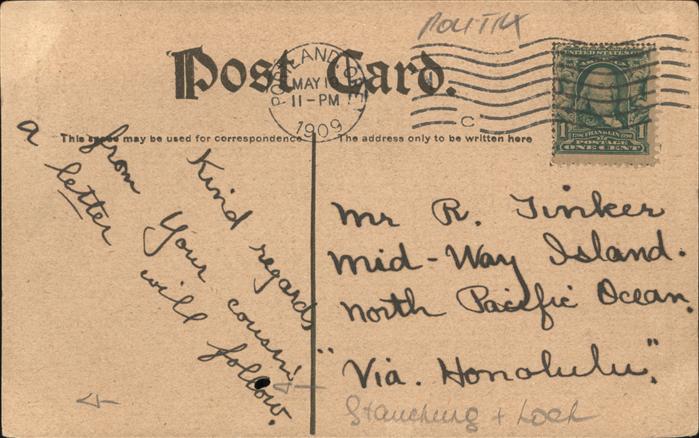 Post Card.
PORTLAND, ORE.
MAY 1
11-PM
1909
C
UNITED STATES OF AMERICA
FRANKLIN
1 POSTAGE 1
ONE CENT
This space may be used for correspondence
The address only to be written here
Kind regards
from your cousin,
a letter will follow.
Mr R. Tinker
Mid-Way Island.
North Pacific Ocean.
"Via. Honolulu".